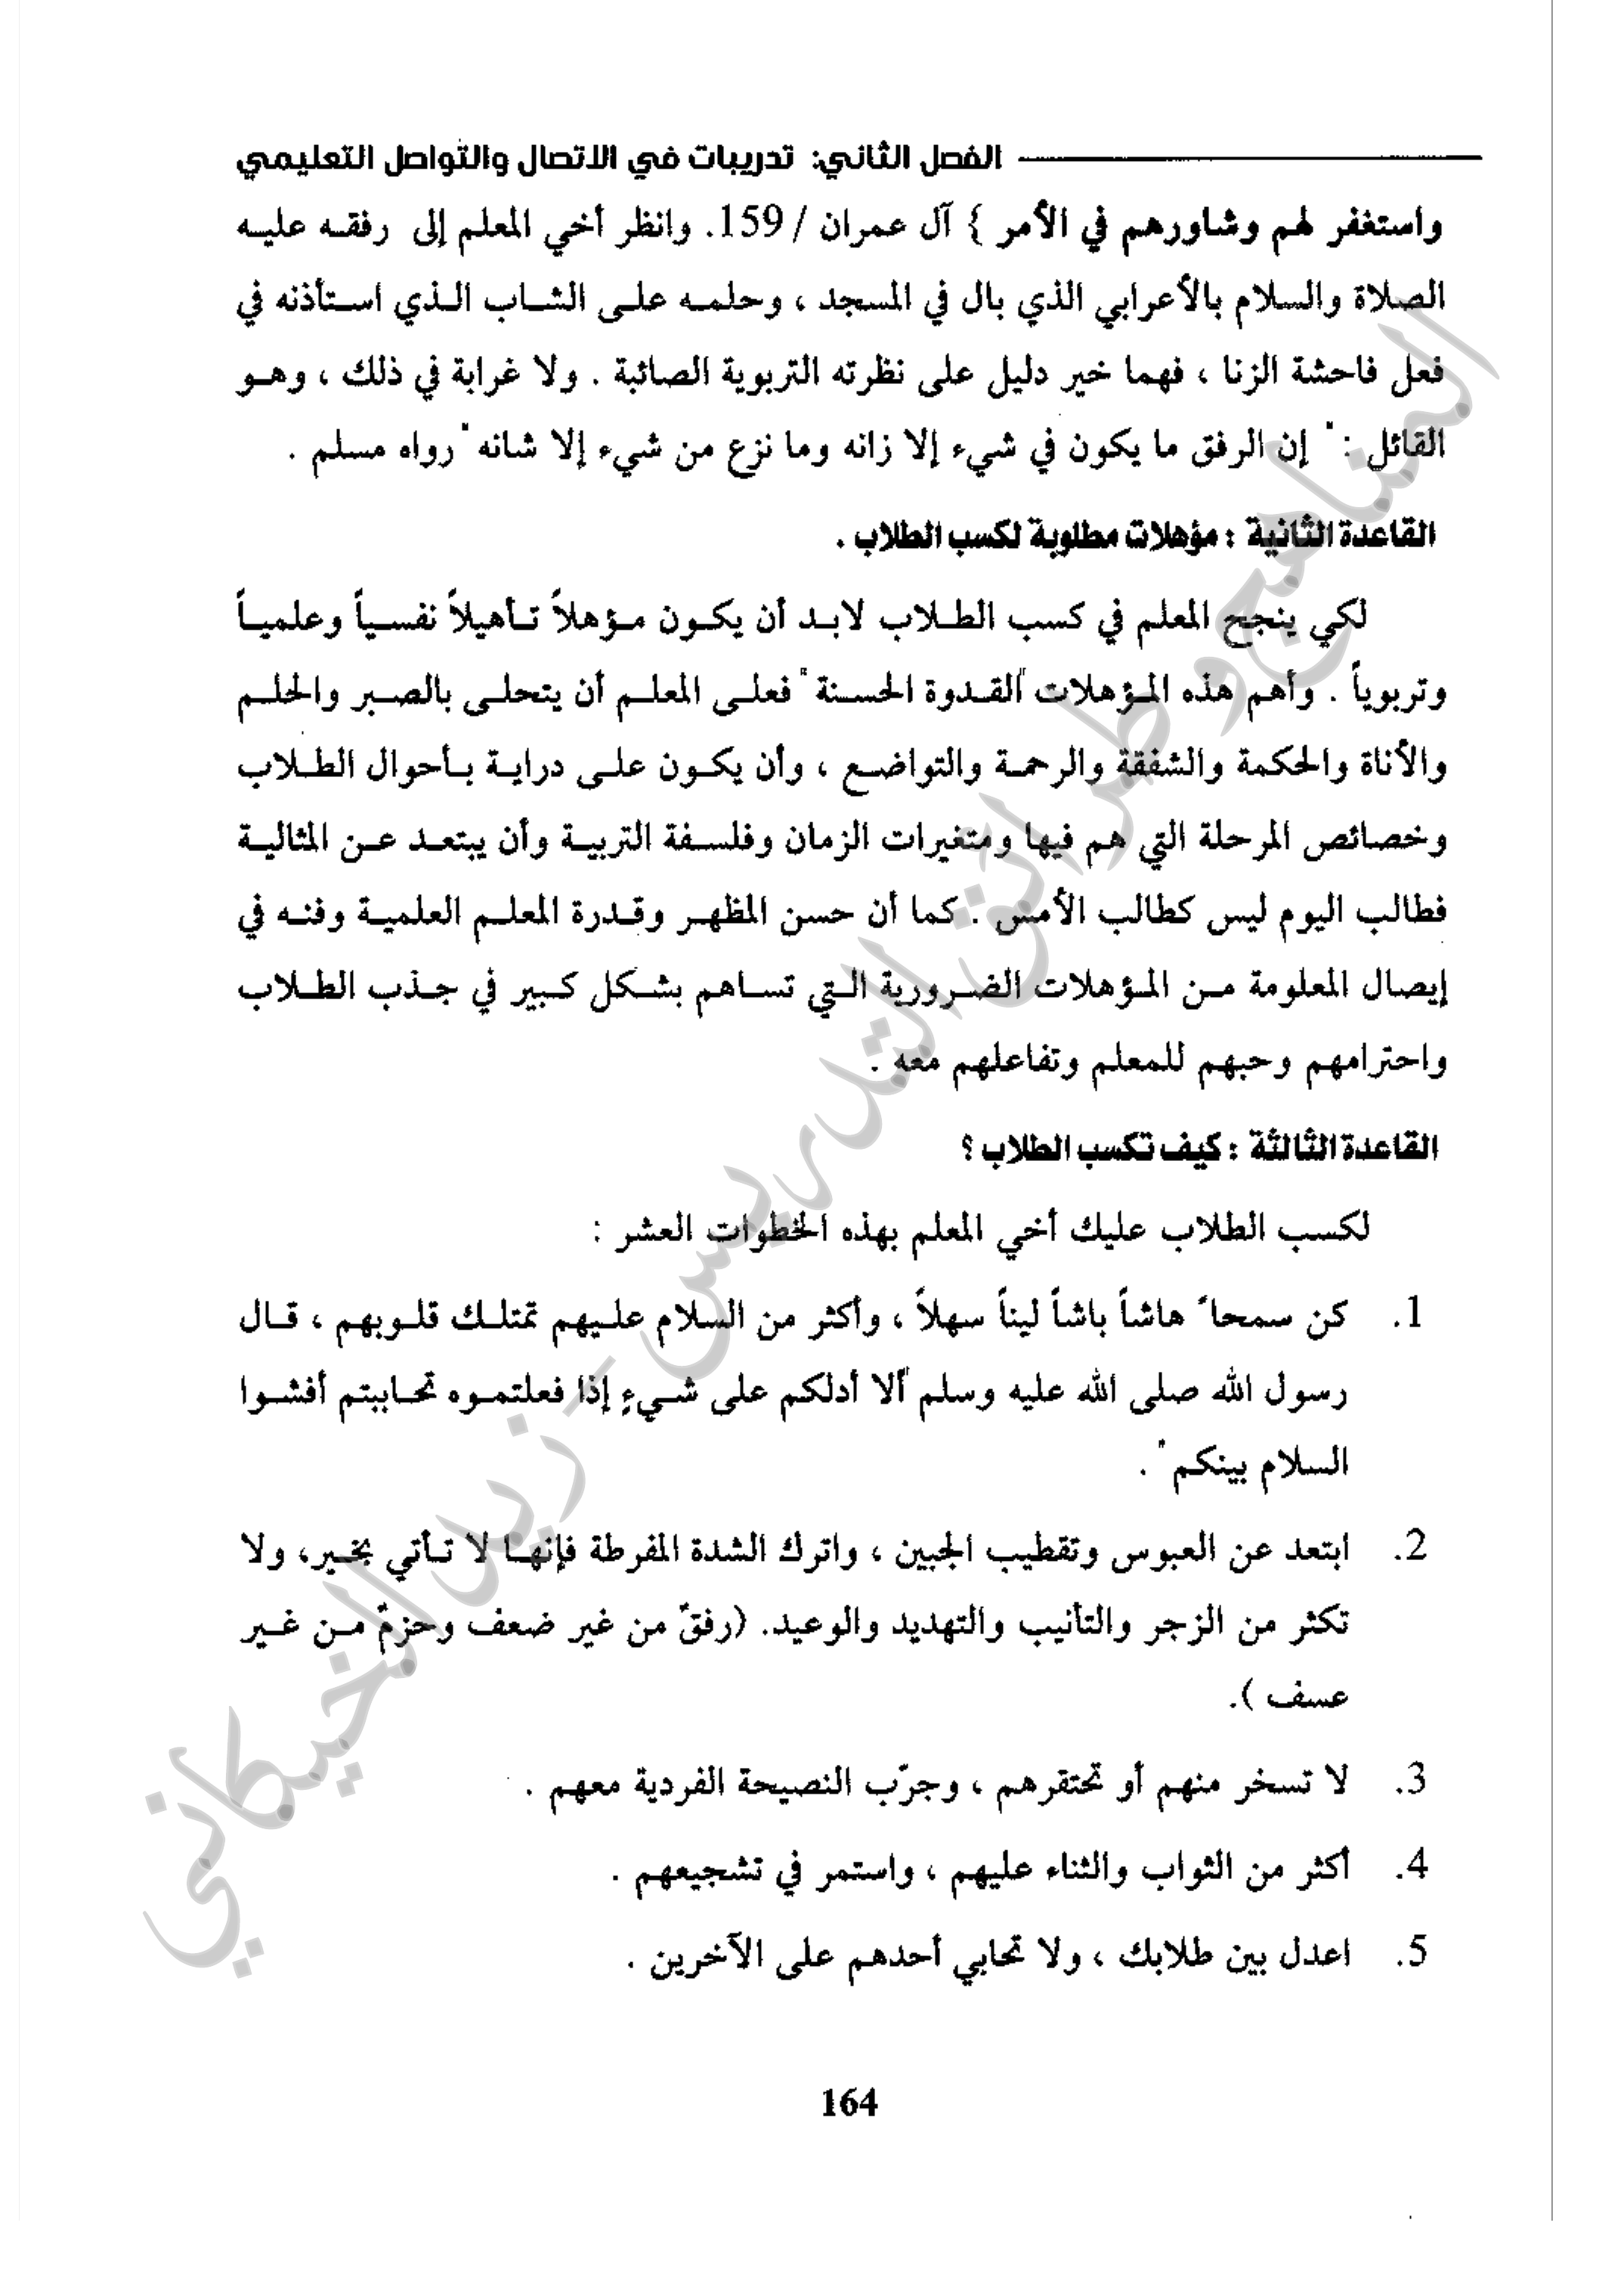 الفصل الثاني: تدريبات في الاتصال والتواصل التعليمي
واستغفر لهم وشاورهم في الأمر } آل عمران / 159. وانظر أخي المعلم إلى رفقه عليه
الصلاة والسلام بالأعرابي الذي بال في المسجد ، وحلمه على الشاب الذي استأذنه في
فعل فاحشة الزنا ، فهما خير دليل على نظرته التربوية الصائبة . ولا غرابة في ذلك ، وهو
القائل : " إن الرفق ما يكون في شيء إلا زانه وما نزع من شيء إلا شانه " رواه مسلم .
القاعدة الثانية : مؤهلات مطلوبة لكسب الطلاب .
لكي ينجح المعلم في كسب الطلاب لابد أن يكون مؤهلاً تأهيلاً نفسياً وعلمياً
وتربوياً . وأهم هذه المؤهلات "القدوة الحسنة " فعلى المعلم أن يتحلى بالصبر والحلم
والأناة والحكمة والشفقة والرحمة والتواضع ، وأن يكون على دراية بأحوال الطلاب
وخصائص المرحلة التي هم فيها ومتغيرات الزمان وفلسفة التربية وأن يبتعد عن المثالية
فطالب اليوم ليس كطالب الأمس . كما أن حسن المظهر وقدرة المعلم العلمية وفنه في
إيصال المعلومة من المؤهلات الضرورية التي تساهم بشكل كبير في جذب الطلاب
واحترامهم وحبهم للمعلم وتفاعلهم معه .
القاعدة الثالثة : كيف تكسب الطلاب ؟
لكسب الطلاب عليك أخي المعلم بهذه الخطوات العشر :
1. كن سمحاً هاشاً باشاً ليناً سهلاً ، وأكثر من السلام عليهم تمتلك قلوبهم ، قال
رسول الله صلى الله عليه وسلم "ألا أدلكم على شيءٍ إذا فعلتموه تحاببتم أفشوا
السلام بينكم " .
2. ابتعد عن العبوس وتقطيب الجبين ، واترك الشدة المفرطة فإنها لا تأتي بخير، ولا
تكثر من الزجر والتأنيب والتهديد والوعيد. (رفقٌ من غير ضعف وحزمٌ من غير
عسف ).
3. لا تسخر منهم أو تحتقرهم ، وجرّب النصيحة الفردية معهم .
4. أكثر من الثواب والثناء عليهم ، واستمر في تشجيعهم .
5. اعدل بين طلابك ، ولا تحابي أحدهم على الآخرين .
164
المناهج وطرائق التدريس - زيد الخيكاني